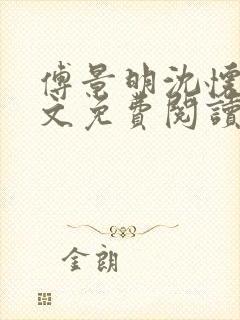 傅景明沈懷
文免費閱讀
金朗